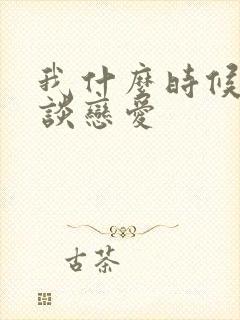 我什麼時候
談戀愛
古茶